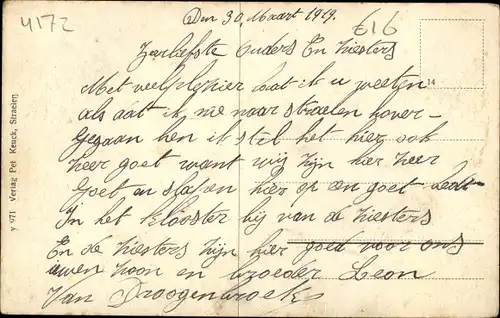 4172
Den 30 Maart 1919.
€16
Zeerliefste Ouders En Zusters
Met veel plezier laat ik u weeten
14
als dat ik nu naar Straelen hover-
Gegaan ben ik stel het hier ook
heer goet want wij zijn hier heer
Goet en slapen hier op een goet bedt
In het klooster bij van de Ziesters
En de Ziesters zijn hier goed voor ons
uwen zoon en broeder Leon
Van Droogenbroeck
y 971 Verlag Pet Keuck, Straelen